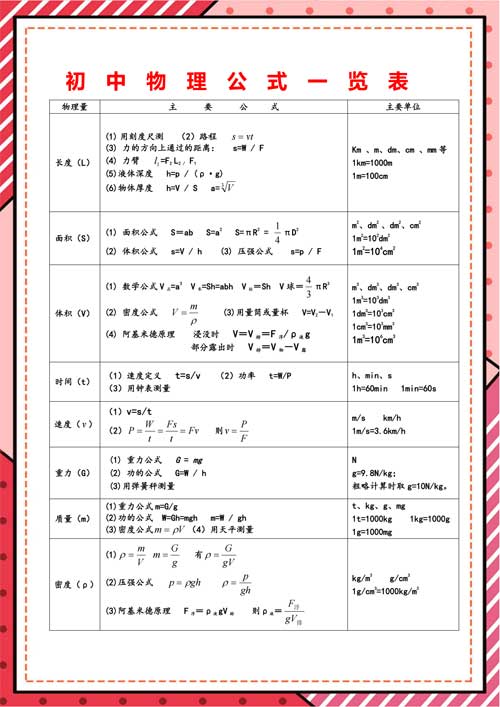 初中物理公式一览表
物理量 主要公式 主要单位
长度（L）
(1) 用刻度尺测 （2）路程 s = vt
(3) 力的方向上通过的距离: s=W / F
(4) 力臂 l₁=F₂L₂/F₁
(5)液体深度 h=p /（ρ·g)
(6)物体厚度 h=V / S a=∛V
Km 、m、dm、cm 、mm等
1km=1000m
1m=100cm
面积（S）
(1) 面积公式 S＝ab S=a² S=πR² = 1/4 πD²
(2) 体积公式 s=V / h (3) 压强公式 s=p / F
m²、dm²、dm²、cm²
1m²=10²dm²
1m²=10⁴cm²
体积（V）
(1) 数学公式V正=a³ V长=Sh=abh V柱=Sh V球= 4/3 πR³
(2) 密度公式 V = m/ρ (3)用量筒或量杯 V=V₂－V₁
(4) 阿基米德原理 浸没时 V＝V排＝F浮/ρ液g
部分露出时 V排＝V物－V露
1m³=10³dm³
1dm³=10³cm³
1cm³=10³mm³
时间（t）
(1) 速度定义 t=s/v (2) 功率 t=W/P
(3) 用钟表测量
h、min、s
1h=60min 1min=60s
速度（v）
(1) v=s/t
(2) P = W/t = Fs/t = Fv 则 v = P/F
m/s km/h
1m/s=3.6km/h
重力（G）
(1) 重力公式 G = mg
(2) 功的公式 G=W / h
(3)用弹簧秤测量
N
g=9.8N/kg；
粗略计算时取g=10N/kg。
质量（m）
(1)重力公式m=G/g
(2)功的公式 W=Gh=mgh m=W / gh
(3)密度公式 m = ρV (4) 用天平测量
t、kg、g、mg
1t=1000kg 1kg=1000g
1g=1000mg
密度（ρ）
(1) ρ = m/V m = G/g 有 ρ = G/gV
(2)压强公式 p = ρgh ρ = p/gh
(3)阿基米德原理 F浮＝ρ液gV排 则ρ液= F浮/gV排
kg/m³ g/cm³
1g/cm³=1000kg/m³